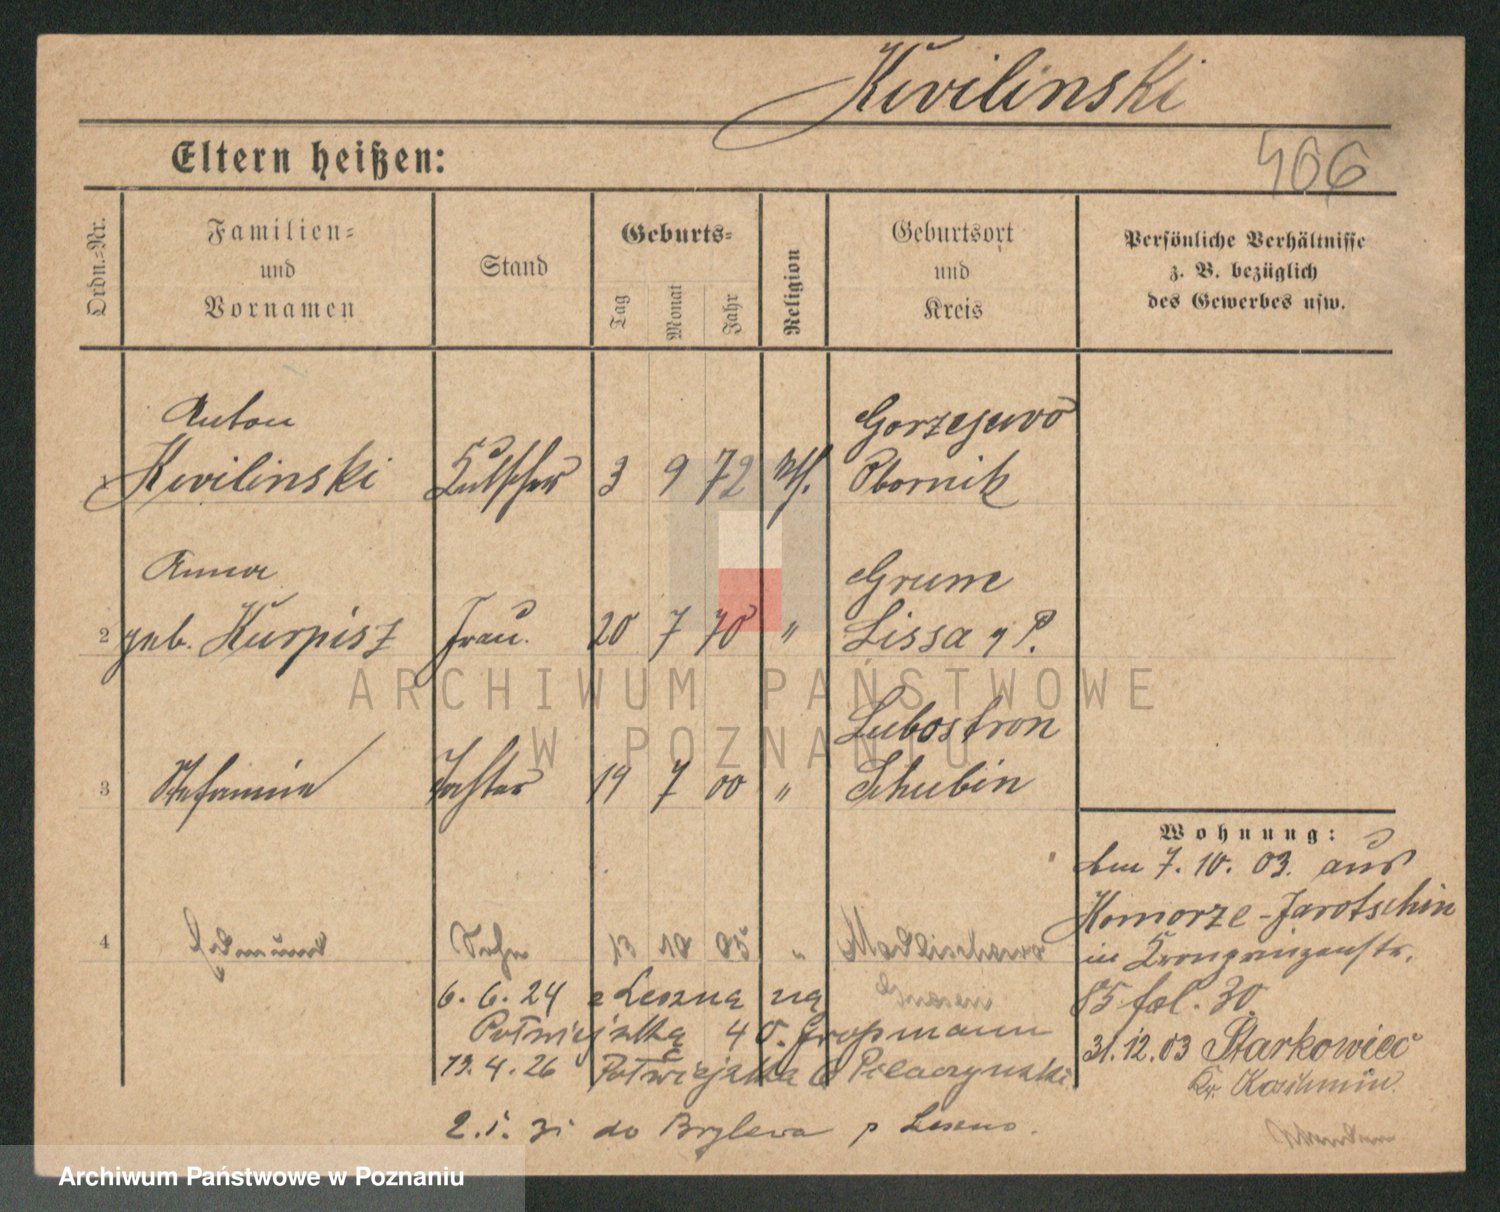 Kwilinski
Eltern heißen:
466
Ordn.-Nr.
Familien-
und
Vornamen
Stand
Geburts-
Tag
Monat
Jahr
Religion
Geburtsort
und
Kreis
Persönliche Verhältnisse
z. B. bezüglich
des Gewerbes usw.
Anton
Kwilinski Kutscher 3 9 72 kth.
Gorzejewo
Obornik
Anna
2 geb. Kurpisz Frau. 20 7 70 "
Grune
Lissa i/P.
3 Stefannie Tochter 19 7 00 "
Lubostron
Schubin
Wohnung:
den 7. 10. 03. aus
Komorze-Jarotschin
in Kronprinzenstr.
85 fol. 30.
31.12.03 Starkowiec
Kr. Koschmin.
4 Edmund Sohn 13 10 05 "
6. 6. 24 z Leszna na
Półwiejska 40. Großmann
13. 4. 26 Półwiejska 6
2. i. 31 do Brylewa p Leszno.
ARCHIWUM PAŃSTWOWE
W POZNANIU
Archiwum Państwowe w Poznaniu